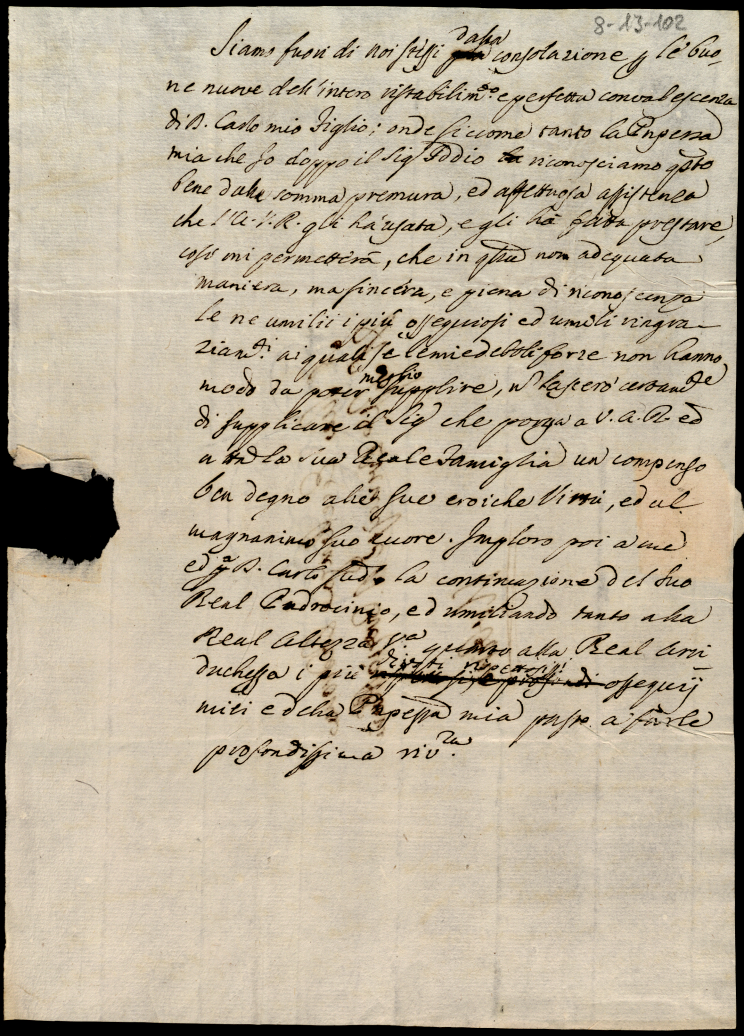 8-13-102
Siamo fuori di noi stessi dalla consolazione p le buo-
ne nuove dell'intero ristabilim.to e perfetta convalescenza
di D. Carlo mio Figlio; onde siccome tanto la Pnpessa
mia che Io doppo il Sig.r Iddio riconosciamo qsto
bene dalla somma premura, ed affettuosa assistenza
che l'A. V. R. gli hà usata, e gli hà fatta prestare,
così mi permetterà, che in qsta non adequata
maniera, ma sincera, e piena di riconoscenza
le ne umilii i più ossequiosi ed umili ringra-
ziam.ti ai quali se le mie deboli forze non hanno
modo da poter meglio supplire, n lascerò certam.te
di supplicare il Sig.r che porga a V. A. R. ed
a tta la sua Reale Famiglia un compenso
ben degno alle sue eroiche Virtù, ed al
magnanimo suo cuore. Imploro poi a me
ed a D. Carlo sud.o la continuazione del suo
Real Padrocinio, ed umiliando tanto alla
Real Altezza V.ra quanto alla Real Arci-
duchessa i più divoti rispettosi ossequij
miei e della Pnpessa mia passo a farle
profondissima riv.za